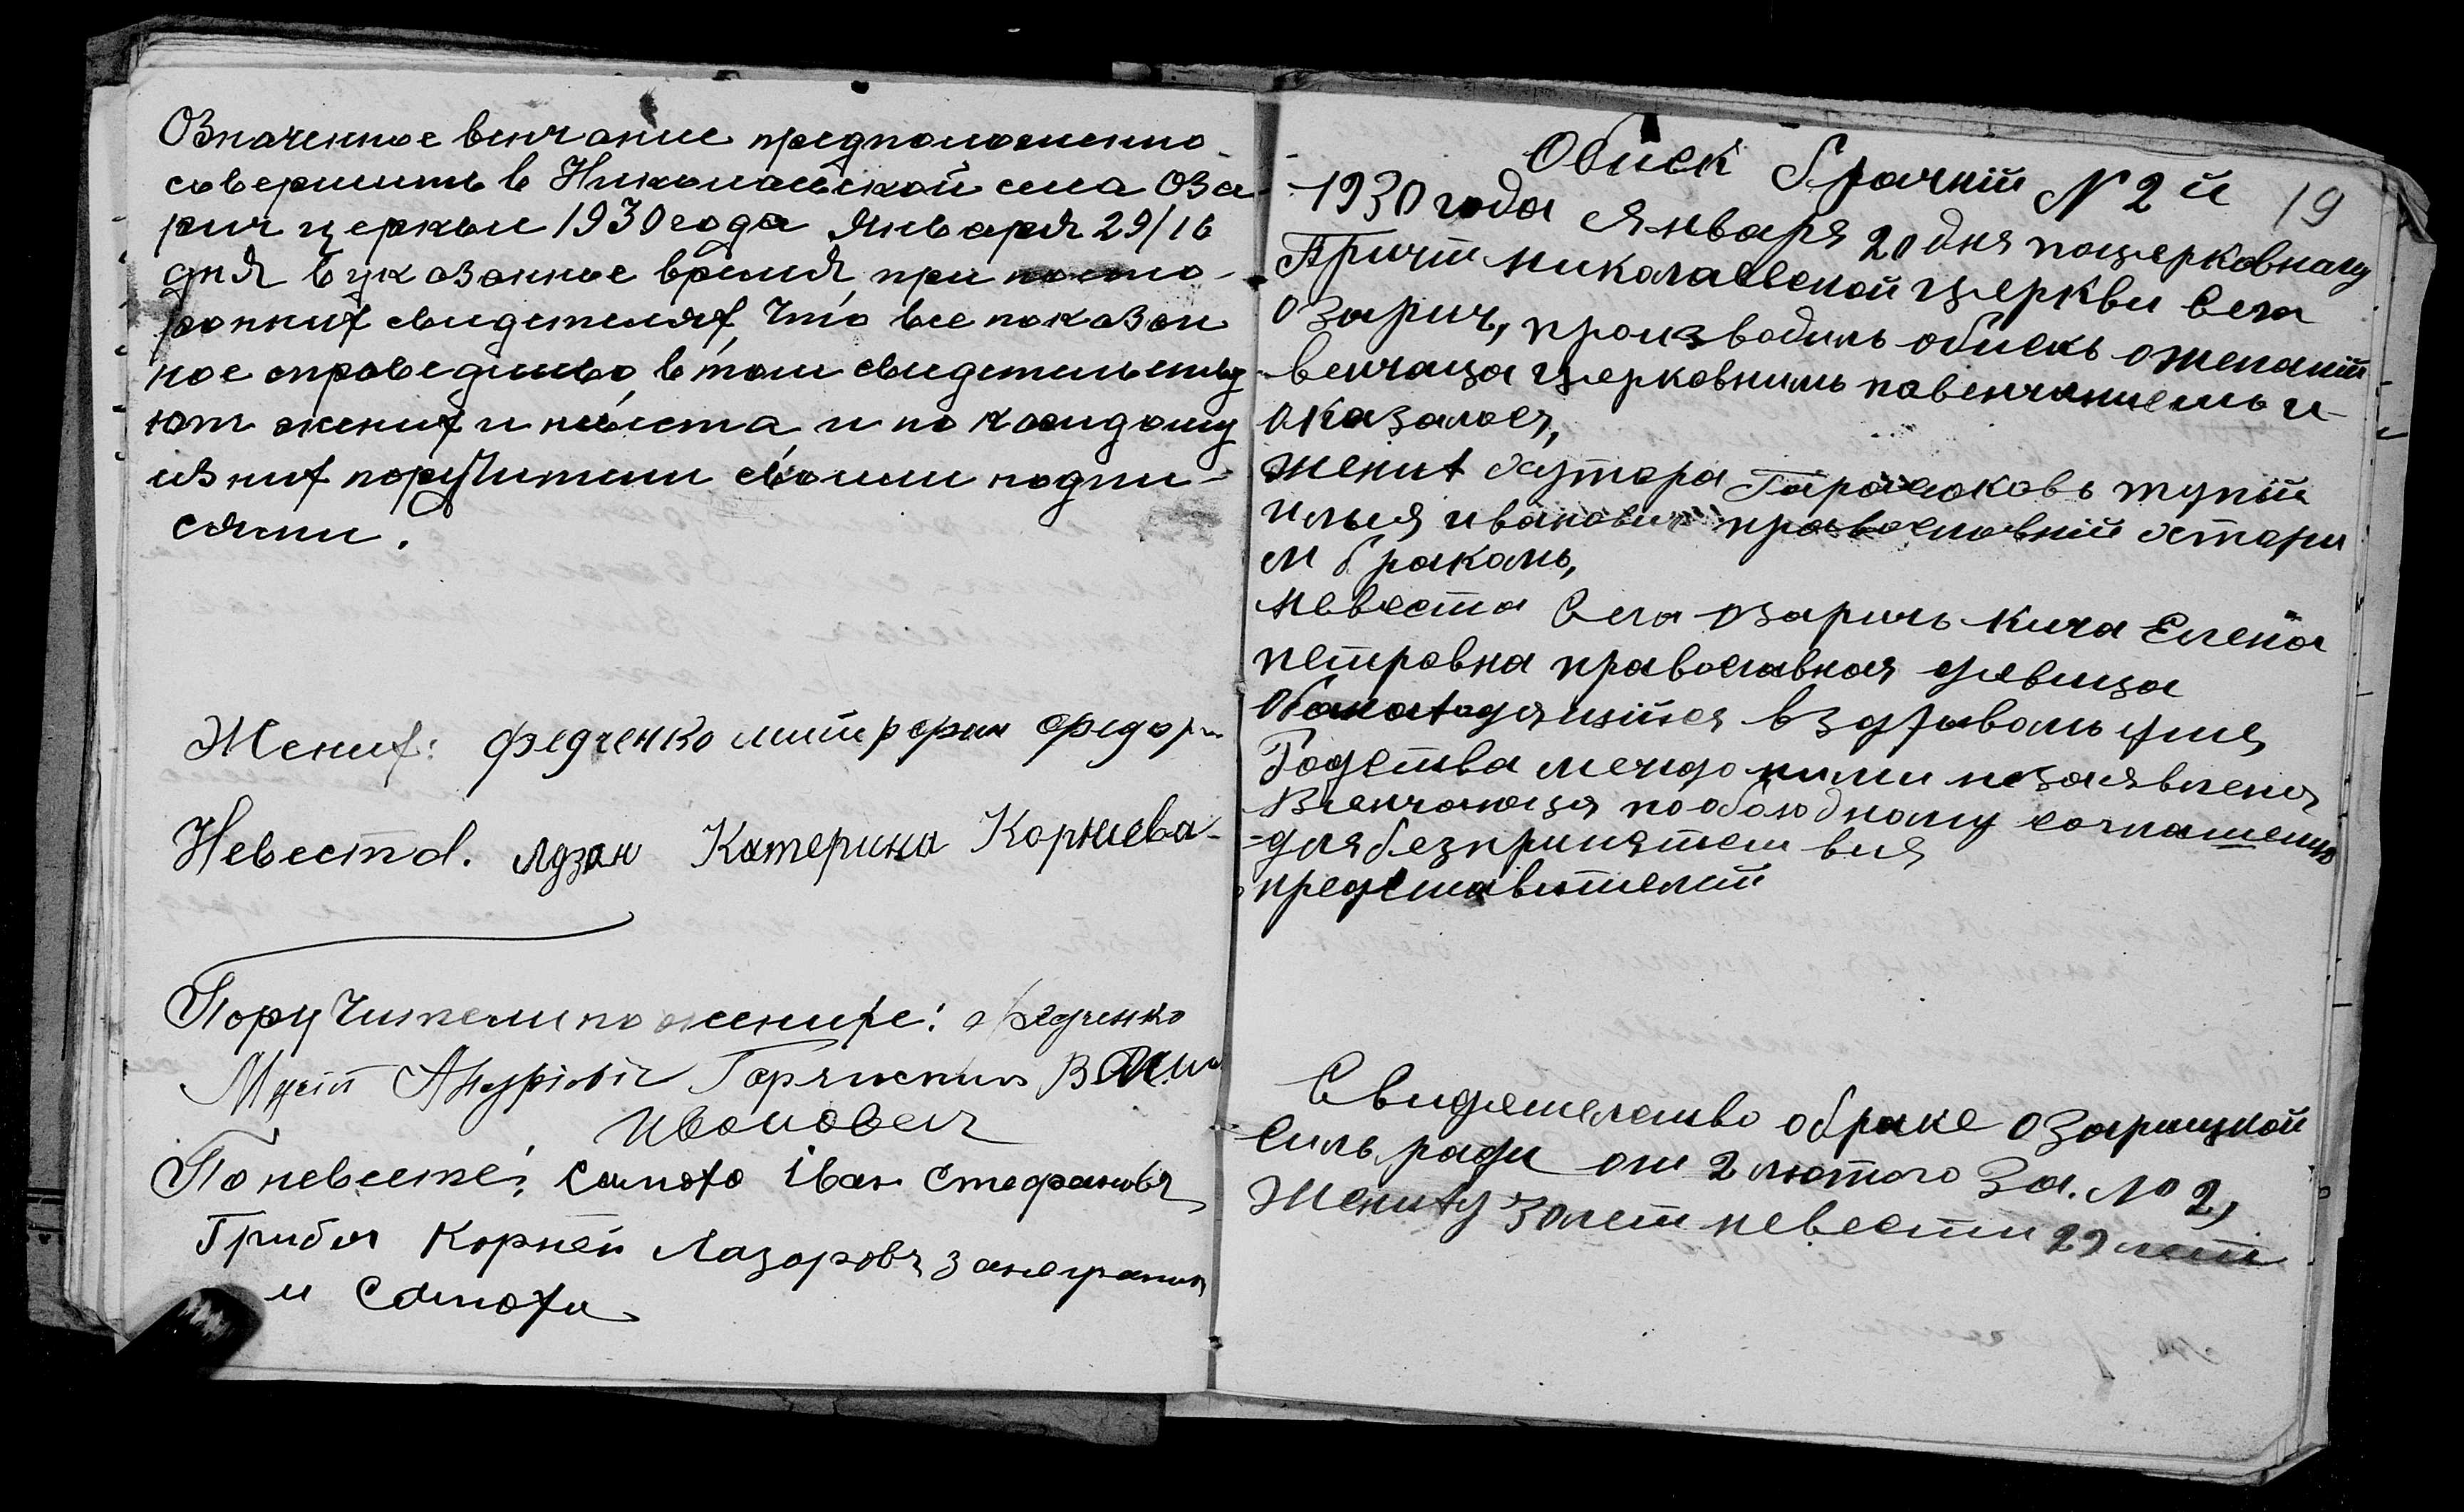 Означенное венчание предположенно
совершить в Николаевской села Оза-
рич церквы 1930 года Января 29/16
дня в указанное время, при посто-
ронних свидетелях, что все показан
ное справедливо, в том свидетельству
ют жених и невеста, и по каждому
из них поручители своими подпи-
сями.
Жених: Федченко
Невеста. Лузан Катерина Корниева-
Поручители по женихе: Федченко
Мусій Андріовіч
Ивонович
По невесте: Самоха Іван Стефанович
Гриба Корней Лазоровч
и Самоха
Обиск брачній № 2 й
19
1930 года Января 20 дня поцерковному
Причт николаевской церкви Села
озарич, производиль обискь о женании
венчаца церковнимь повенчаниемь и
оказалося,
жених хутора
илия иванович православній
м бракомь,
невеста Села озаричь Кича Елена
петровна православная девица
оба находящійся в здравомь уме,
Родства межедо ними незаявлено
Венчающя по обоюдному согла­шению
для безпринятствия
представителей
Свидетелство о браке озарицкой
Силь ради от 2 лютого За. № 2,
Жениху 30 лет невести 29 лет